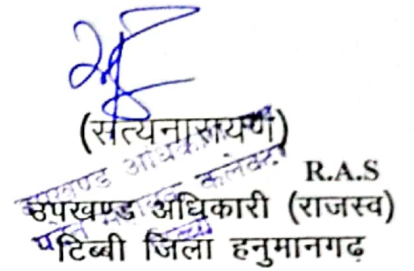 (सत्यनारायण)
R.A.S
उपखण्ड अधिकारी (राजस्व)
टिब्बी जिला हनुमानगढ़